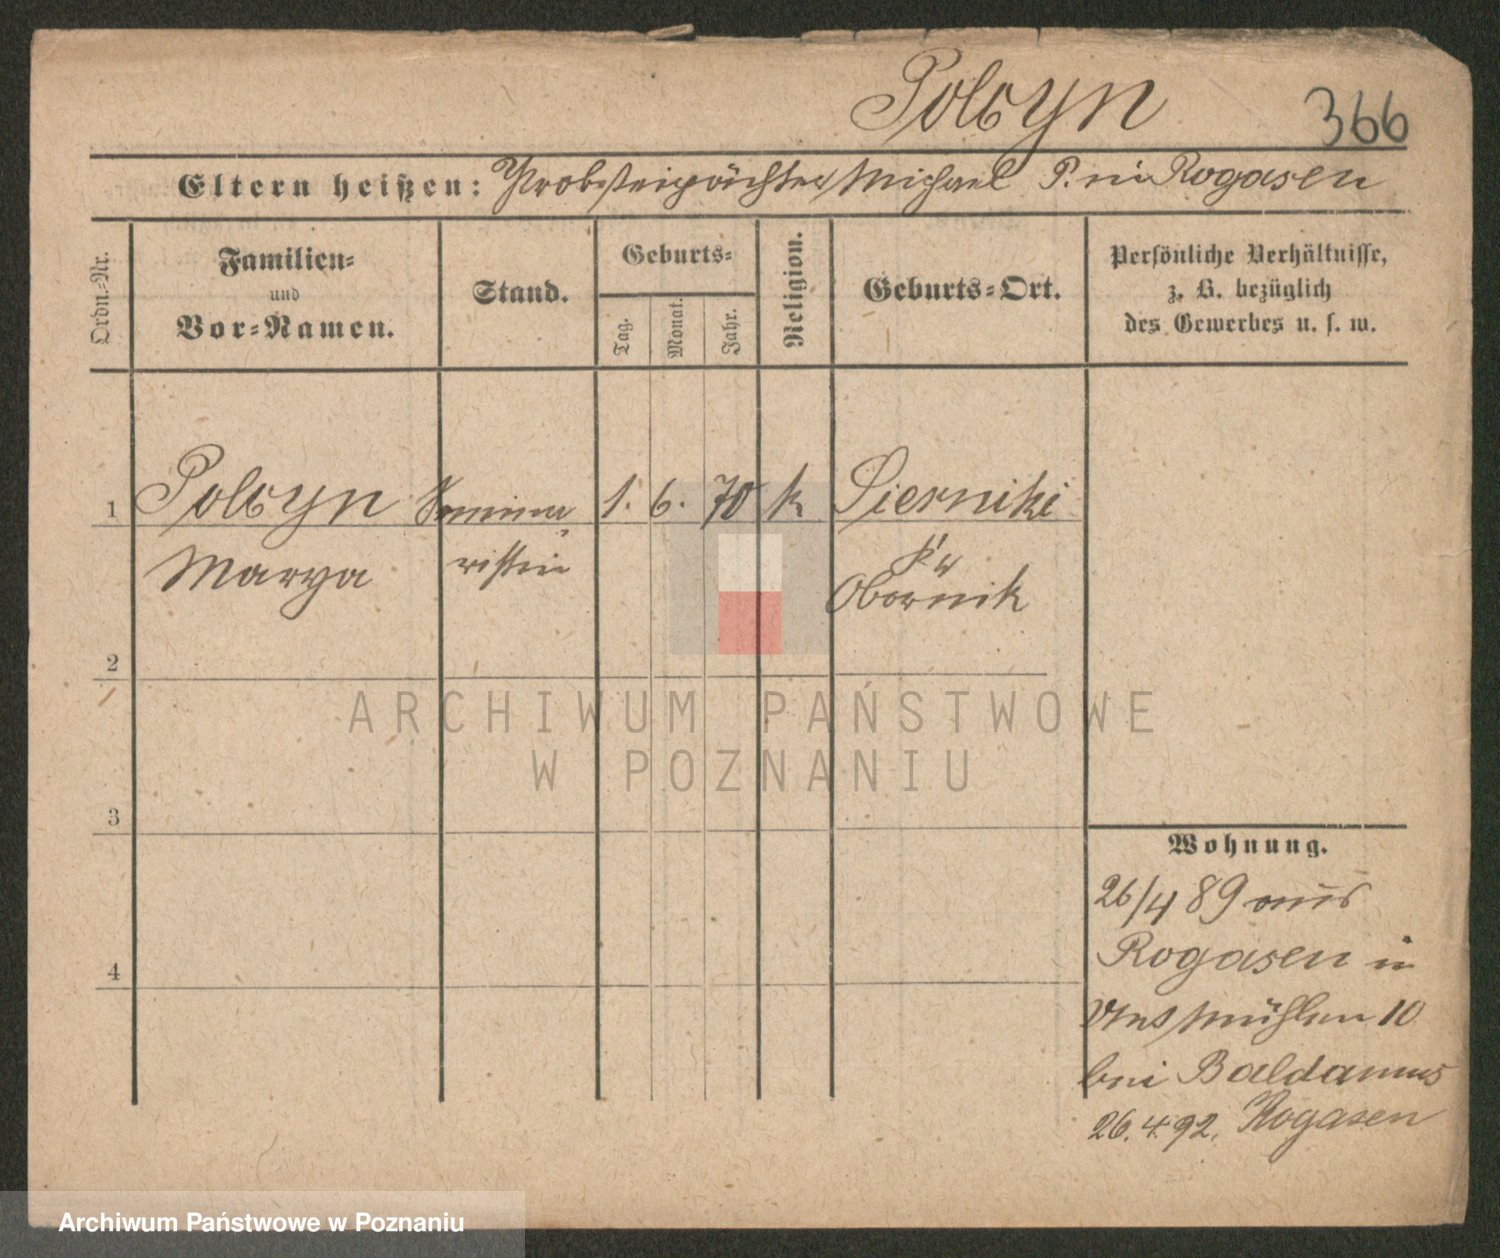 Polcyn 366
Eltern heißen: Probsteipächter Michael P. in Rogasen
Ordn.-Nr.
Familien-
und
Vor-Namen.
Stand.
Geburts-
Tag.
Monat.
Jahr.
Religion.
Geburts-Ort.
Persönliche Verhältnisse,
z. B. bezüglich
des Gewerbes u. s. w.
1 Polcyn Semina 1. 6. 70 k Sierniki
Marya ristin Kr
Obornik
2
ARCHIWUM PAŃSTWOWE
W POZNANIU
3
Wohnung.
26/4 89 aus
Rogasen in
4
Mühlen 10
bei Baldamus
26.4.92. Rogasen
Archiwum Państwowe w Poznaniu